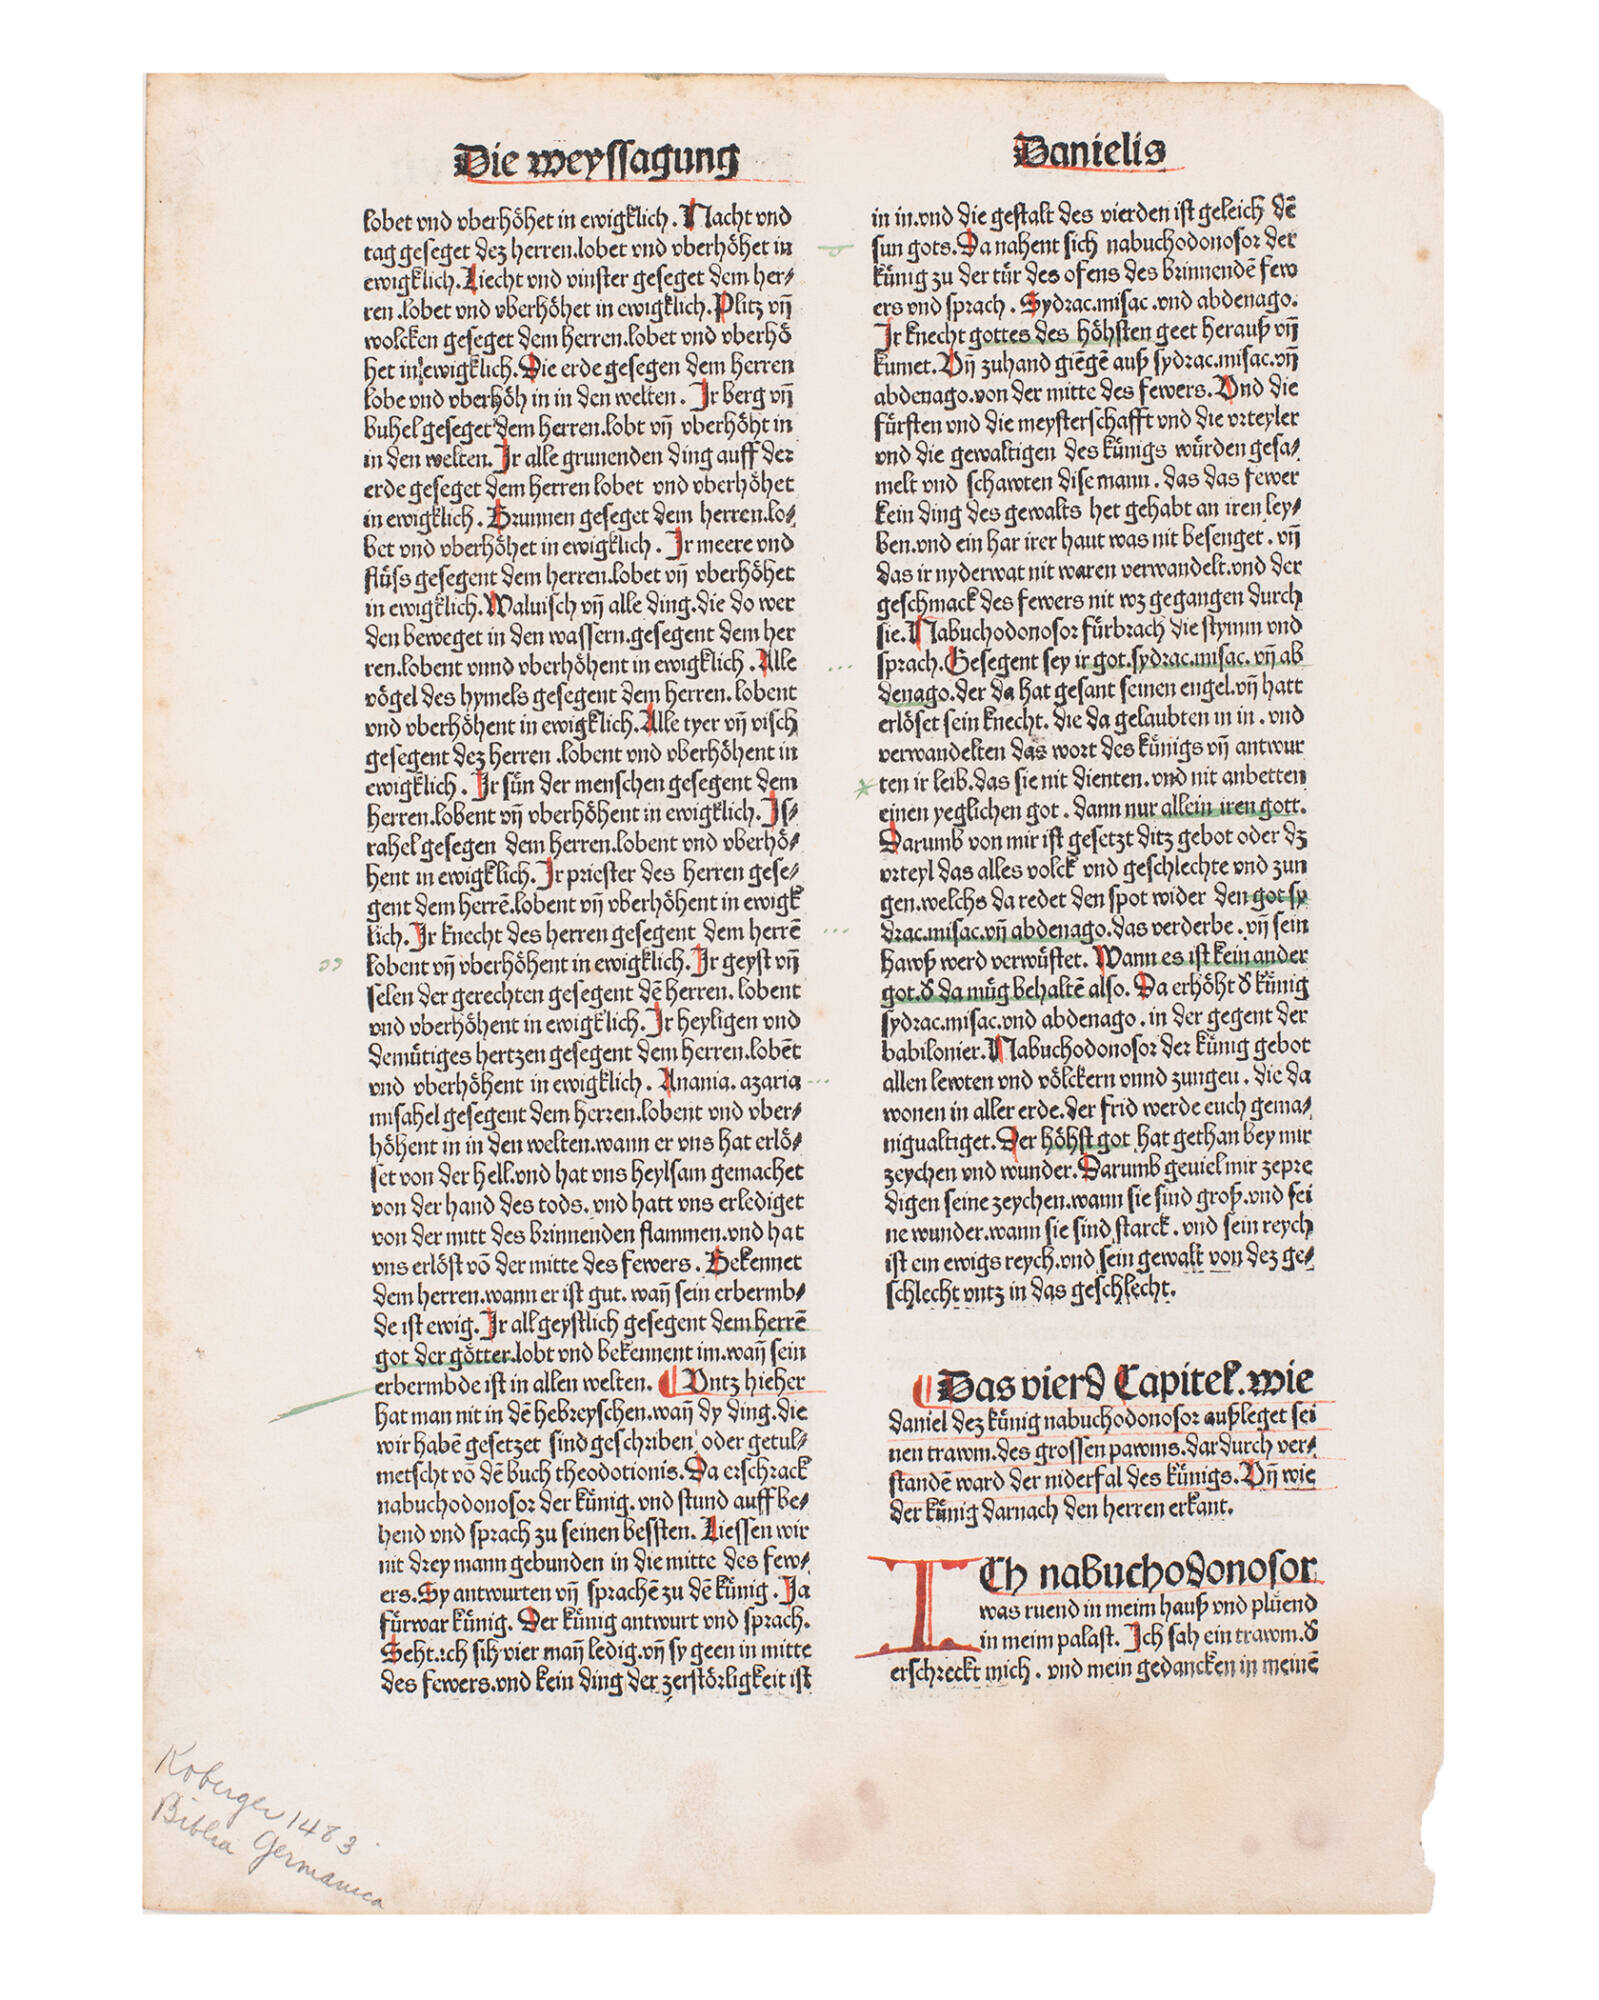 Die weyssagung
lobet vnd vberhöhet in ewigklich. Nacht vnd
tag geseget dez herren.lobet vnd vberhöhet in
ewigklich. Liecht vnd vinster geseget dem her⸗
ren .lobet vnd vberhöhet in ewigklich. Plitz vñ
wolcken geseget dem herren.lobet vnd vberhö
het in ewigklich. Die erde gesegen dem herren
lobe vnd vberhöh in in den welten . Ir berg vñ
buhel geseget dem herren.lobt vñ vberhöht in
in den welten. Ir alle grunenden ding auff der
erde geseget dem herren lobet vnd vberhöhet
in ewigklich . Brunnen geseget dem herren.lo⸗
bet vnd vberhöhet in ewigklich . Ir meere vnd
flüss gesegent dem herren.lobet vñ vberhöhet
in ewigklich. Waluisch vñ alle ding.die do wer
den beweget in den wassern.gesegent dem her
ren.lobent vnnd vberhöhent in ewigklich . Alle
vögel des hymels gesegent dem herren. lobent
vnd vberhöhent in ewigklich. Alle tyer vñ visch
gesegent dez herren .lobent vnd vberhöhent in
ewigklich . Ir sün der menschen gesegent dem
herren.lobent vñ vberhöhent in ewigklich. Is⸗
rahel gesegen dem herren.lobent vnd vberhö⸗
hent in ewigklich. Ir priester des herren gese⸗
gent dem herrē.lobent vñ vberhöhent in ewigk
lich. Ir knecht des herren gesegent dem herrē
lobent vñ vberhöhent in ewigklich. Ir geyst vñ
selen der gerechten gesegent dē herren. lobent
vnd vberhöhent in ewigklich. Ir heyligen vnd
demütiges hertzen gesegent dem herren.lobēt
vnd vberhöhent in ewigklich . Anania. azaria
misahel gesegent dem herren.lobent vnd vber⸗
höhent in in den welten.wann er vns hat erlö⸗
set von der hell.vnd hat vns heylsam gemachet
von der hand des tods. vnd hatt vns erlediget
von der mitt des brinnenden flammen.vnd hat
vns erlöst vō der mitte des fewers . Bekennet
dem herren.wann er ist gut. wañ sein erbermb⸗
de ist ewig. Ir all geystlich gesegent dem herrē
got der götter.lobt vnd bekennent im.wañ sein
erbermbde ist in allen welten. ¶ Vntz hieher
hat man nit in dē hebreyschen.wañ dy ding.die
wir habē gesetzet sind geschriben oder getul⸗
metscht vō dē buch theodotionis. Da erschrack
nabuchodonosor der künig. vnd stund auff be⸗
hend vnd sprach zu seinen bessten. Liessen wir
nit drey mann gebunden in die mitte des few⸗
ers. Sy antwurten vñ sprachē zu dē künig . Ja
fürwar künig. Der künig antwurt vnd sprach.
Seht.ich sih vier mañ ledig.vñ sy geen in mitte
des fewers.vnd kein ding der zerstörligkeit ist
Danielis
in in.vnd die gestalt des vierden ist geleich dē
sun gots. Da nahent sich nabuchodonosor der
künig zu der tür des ofens des brinnendē few
ers vnd sprach . Sydrac.misac .vnd abdenago.
Ir knecht gottes des höhsten geet herauß vñ
kumet. Vñ zuhand giēgē auß sydrac.misac.vñ
abdenago.von der mitte des fewers. Vnd die
fürsten vnd die meysterschafft vnd die vrteyler
vnd die gewaltigen des künigs würden gesa⸗
melt vnd schawten dise mann . das das fewer
kein ding des gewalts het gehabt an iren ley⸗
ben.vnd ein har irer haut was nit besenget . vñ
das ir nyderwat nit waren verwandelt.vnd der
geschmack des fewers nit wz gegangen durch
sie. Nabuchodonosor fürbrach die stymm vnd
sprach. Gesegent sey ir got.sydrac.misac. vñ ab
denago.der da hat gesant seinen engel.vñ hatt
erlöset sein knecht. die da gelaubten in in . vnd
verwandelten das wort des künigs vñ antwur
ten ir leib.das sie nit dienten. vnd nit anbetten
einen yeglichen got . dann nur allein iren gott.
Darumb von mir ist gesetzt ditz gebot oder dz
vrteyl das alles volck vnd geschlechte vnd zun
gen.welchs da redet den spot wider den got sy
drac.misac.vñ abdenago.das verderbe . vñ sein
hawß werd verwüstet. Wann es ist kein ander
got.ð da müg behaltē also. Da erhöht ð künig
sydrac.misac.vnd abdenago . in der gegent der
babilonier. Nabuchodonosor der künig gebot
allen lewten vnd völckern vnnd zungeu . die da
wonen in aller erde.der frid werde euch gema⸗
nigualtiget. Der höhst got hat gethan bey mir
zeychen vnd wunder. Darumb geuiel mir zepre
digen seine zeychen.wann sie sind groß.vnd sei
ne wunder.wann sie sind starck . vnd sein reych
ist ein ewigs reych.vnd sein gewalt von dez ge⸗
schlecht vntz in das geschlecht.
¶ Das vierd Capitel. wie
daniel dez künig nabuchodonosor außleget sei
nen trawm.des grossen pawms.dardurch ver⸗
standē ward der niderfal des künigs. Vñ wie
der künig darnach den herren erkant.
ICh nabuchodonosor
was ruend in meim hauß vnd plüend
in meim palast. Ich sah ein trawm.ð
erschreckt mich . vnd mein gedancken in meinē
Koberger 1483
Biblia Germanica